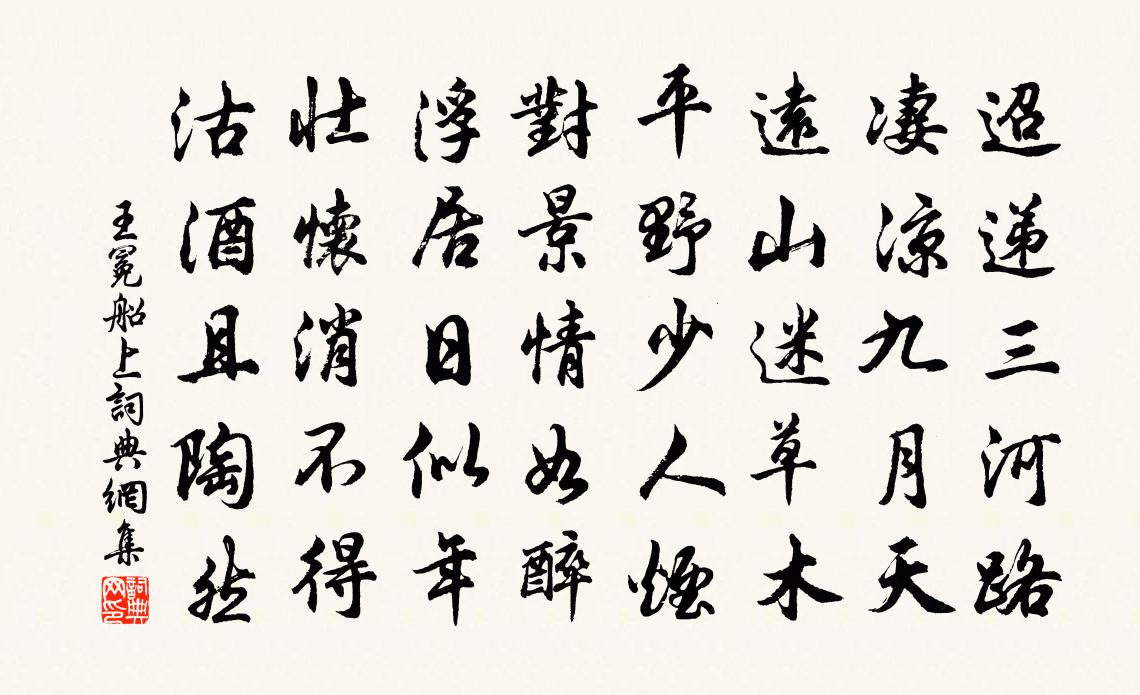 迢遞三河路
淒涼九月天
遠山迷草木
平野少人煙
對景情如醉
浮居日似年
壯懷消不得
沽酒且陶然
王冕船上詞典網集
詞典網印